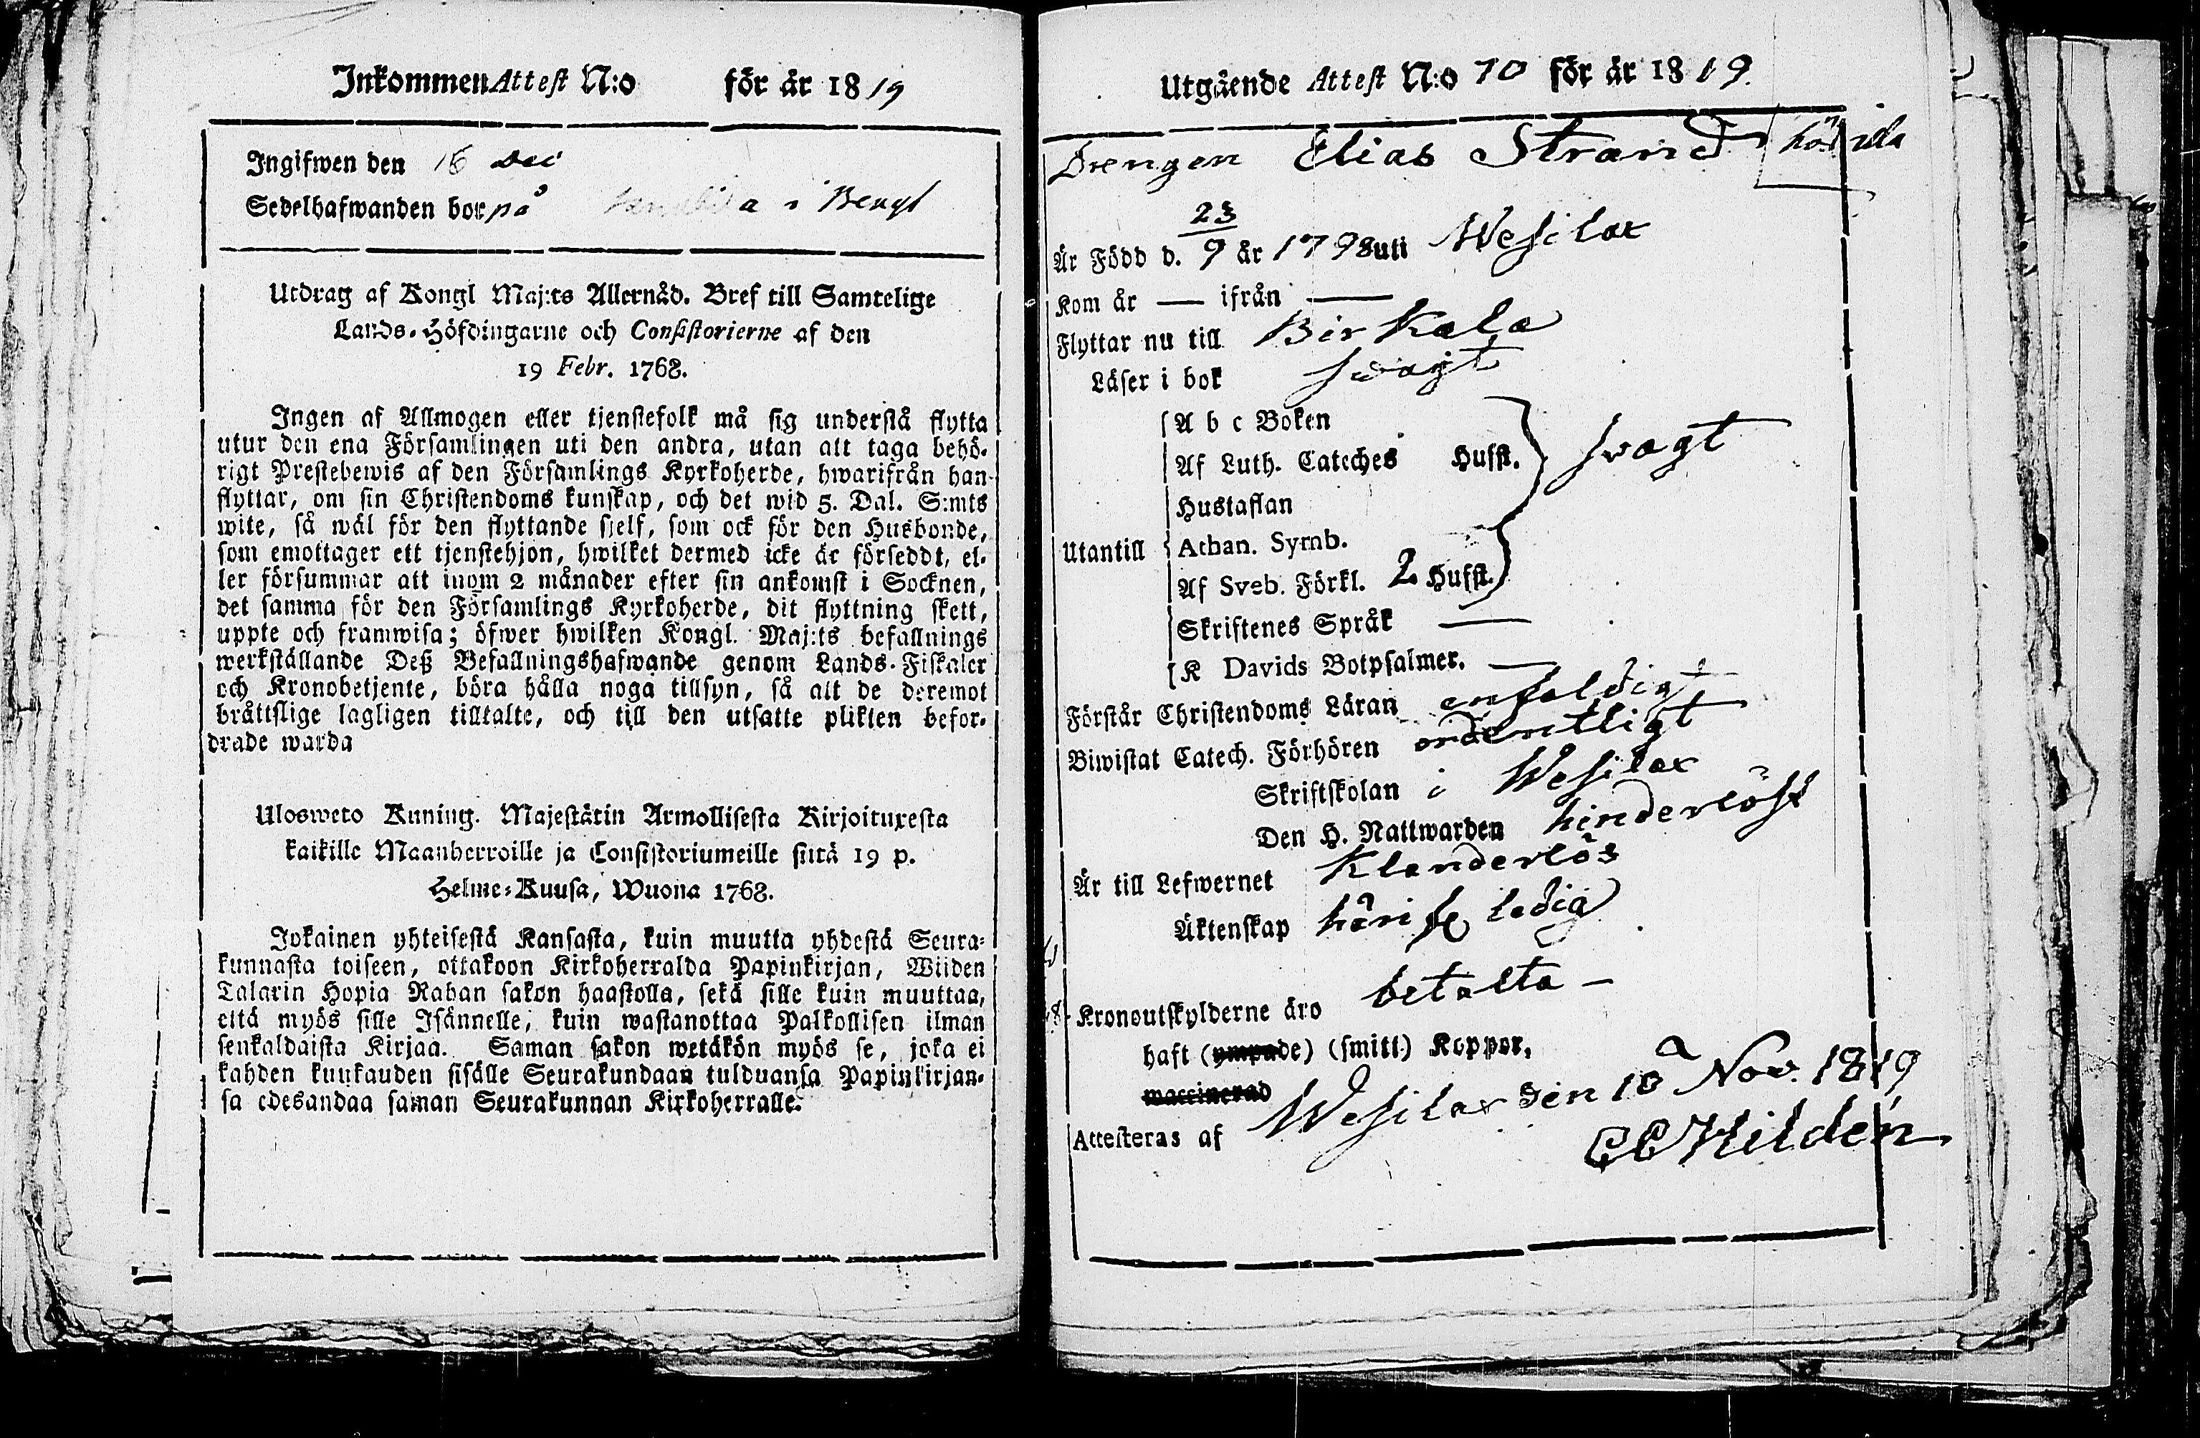 Inkommen Attest N:o för år 1819
Ingifwen den 16 Dec
Sedelhafwanden bor på a i Bengl
Utdrag af Kongl Maj:ts Allernåd. Bref till Samtelige
Lands-Höfdingarne och Consistorierne af den
19 Febr. 1768.
Ingen af Allmogen eller tjenstefolk må sig understå flytta
utur den ena Församlingen uti den andra, utan att taga behö-
rigt Prestebewis af den Församlings Kyrkoherde, hwarifrån han
flyttar, om sin Christendoms kunskap, och det wid 5. Dal. S:mts
wite, så wäl för den flyttande sjelf, som ock för den Husbonde,
som emottager ett tjenstehjon, hwilket dermed icke är förseddt, el-
ler försummar att inom 2 månader efter sin ankomst i Socknen,
det samma för den Församlings Kyrkoherde, dit flyttning skett,
uppte och framwisa; öfwer hwilken Kongl. Maj:ts befallnings
werkställande Deß Befallningshafwande genom Lands-Fiskaler
och Kronobetjente, böra hålla noga tillsyn, så att de deremot
bråttslige lagligen tilltalte, och till den utsatte plikten befor-
drade warda
Ulosweto Kuning. Majestätin Armollisesta Kirjoituxesta
kaikille Maanherroille ja Consistoriumeille siitä 19 p.
Helme-Kuusa, Wuona 1768.
Jokainen yhteisestä Kansasta, kuin muutta yhdestä Seura-
kunnasta toiseen, ottakoon Kirkoherralda Papinkirjan, Wiiden
Talarin Hopia Rahan sakon haastolla, sekä sille kuin muuttaa,
että myös sille Isännelle, kuin wastanottaa Palkollisen ilman
senkaldaista Kirjaa. Saman sakon wetäkön myös se, joka ei
kahden kuukauden sisälle Seurakundaan tulduansa Papinkirjan-
sa edesandaa saman Seurakunnan Kirkoherralle.
Utgående Attest N:o 70 för år 1819.
Drengen Elias Strand
Är Född d. 23/9 år 1798 uti Wesilax
Kom år — ifrån —
Flyttar nu till Birkala
Läser i bok svagt
A b c Boken
Af Luth. Cateches Hufst. svagt
Hustaflan
Utantill Athan. Symb.
Af Sveb. Förkl. 2 Hufst.
Skriftenes Språk —
K Davids Botpsalmer. —
Förstår Christendoms Läran enfaldigt
Biwistat Catech. Förhören ordentligt
Skriftskolan i Wesilax
Den H. Nattwarden hinderlöst
Är till Lefwernet Klanderlös
Äktenskap ledig
Kronoutskylderne äro betalta —
haft (ympade) (smitt.) Koppor,
waccinerad
Attesteras af Wesilax den 10 Nov. 1819
CC Hildén